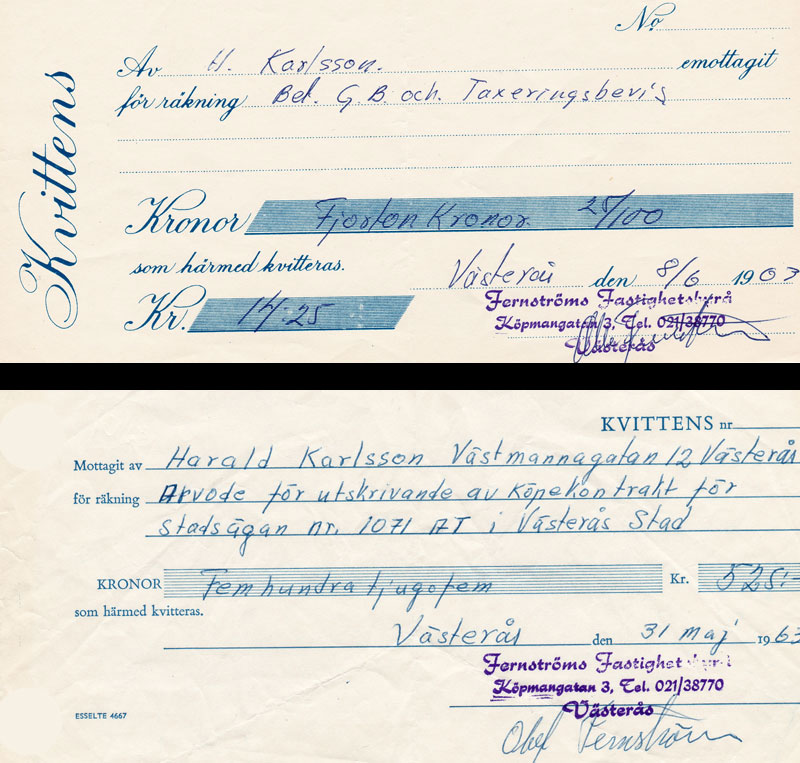 Kvittens
No
Av H. Karlsson. emottagit
för räkning Bet. G.B. och. Taxeringsbevis
Kronor Fjorton Kronor 25/100
som härmed kvitteras.
Västerås den 8/6 1963
Kr. 14:25
Fernströms Fastighetsbyrå
Köpmangatan 3, Tel. 021/38770
Västerås
KVITTENS nr
Mottagit av Harald Karlsson Västmannagatan 12 Västerås
för räkning Arvode för utskrivande av Köpekontrakt för
Stadsägan nr. 1071 AT i Västerås Stad
KRONOR Femhundratjugofem Kr. 525:-
som härmed kvitteras.
Västerås den 31 maj 1963
Fernströms Fastighetsbyrå
Köpmangatan 3, Tel. 021/38770
Västerås
ESSELTE 4667
Olof Fernström